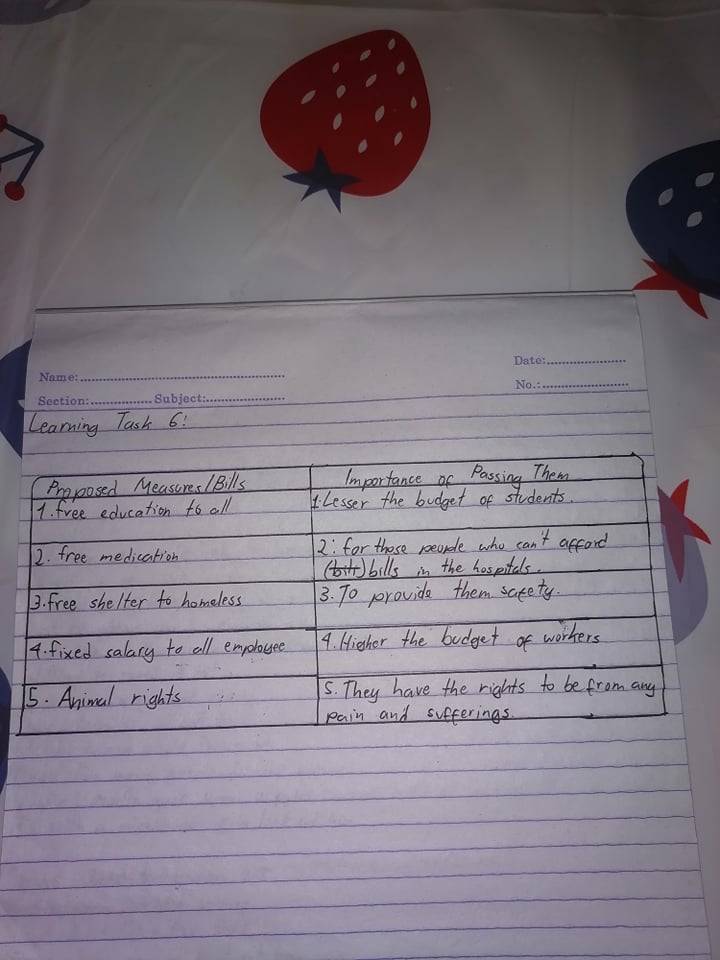 Name:................................................
Date:.....................
Section:............... Subject:....................
No.:......................
Learning Task 6:
Proposed Measures/Bills
Importance of Passing Them
1. free education to all
1. Lesser the budget of students.
2. free medication
2. for those people who can't afford
(bills) bills in the hospitals.
3. free shelter to homeless
3. To provide them safety.
4. fixed salary to all employee
4. Higher the budget of workers
5. Animal rights
5. They have the rights to be from any
pain and sufferings.